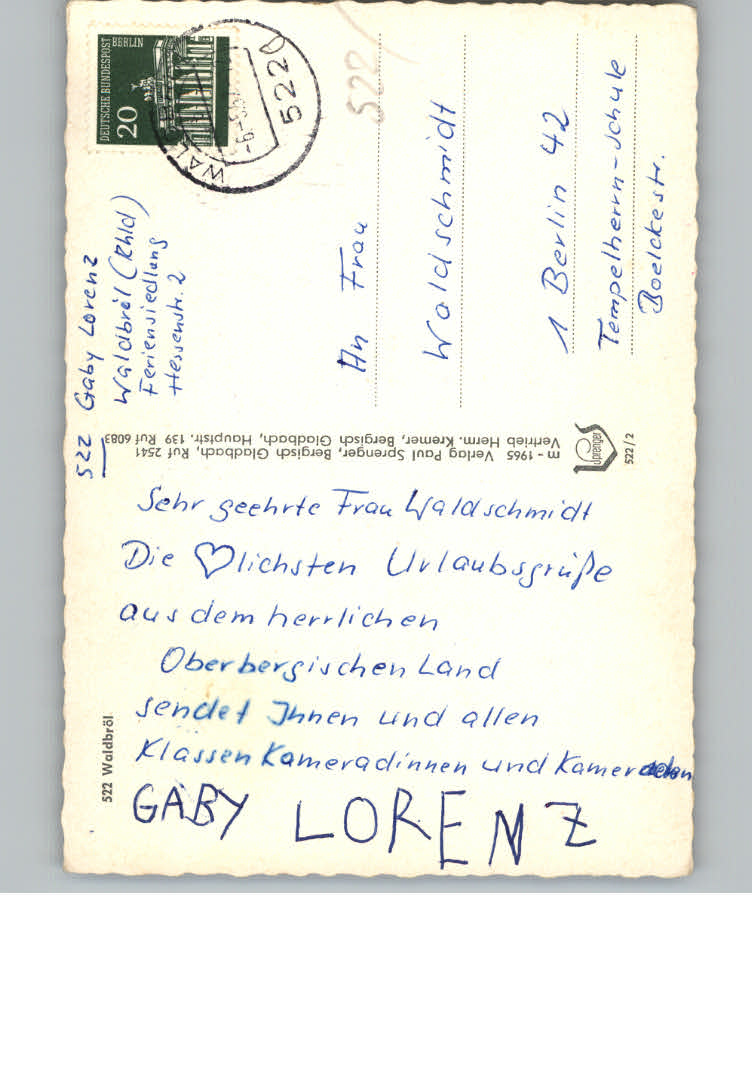 Sehr geehrte Frau Waldschmidt
Die ♡lichsten Urlaubsgrüße
aus dem herrlichen
Oberbergischen Land
sendet Ihnen und allen
Klassenkameradinnen und Kameraden
GABY LORENZ
522 Waldbröl
522 Gaby Lorenz
Waldbröl (Rhld)
Feriensiedlung
Hessenstr. 2
m - 1965 Verlag Paul Sprenger, Bergisch Gladbach, Ruf 2541
Vertrieb Herm. Kremer, Bergisch Gladbach, Hauptstr. 139 Ruf 6083
Sprenger
522/2
DEUTSCHE BUNDESPOST BERLIN
20
5220
522/
An Frau
Waldschmidt
1 Berlin 42
Tempelherrn-schule
Boelckestr.